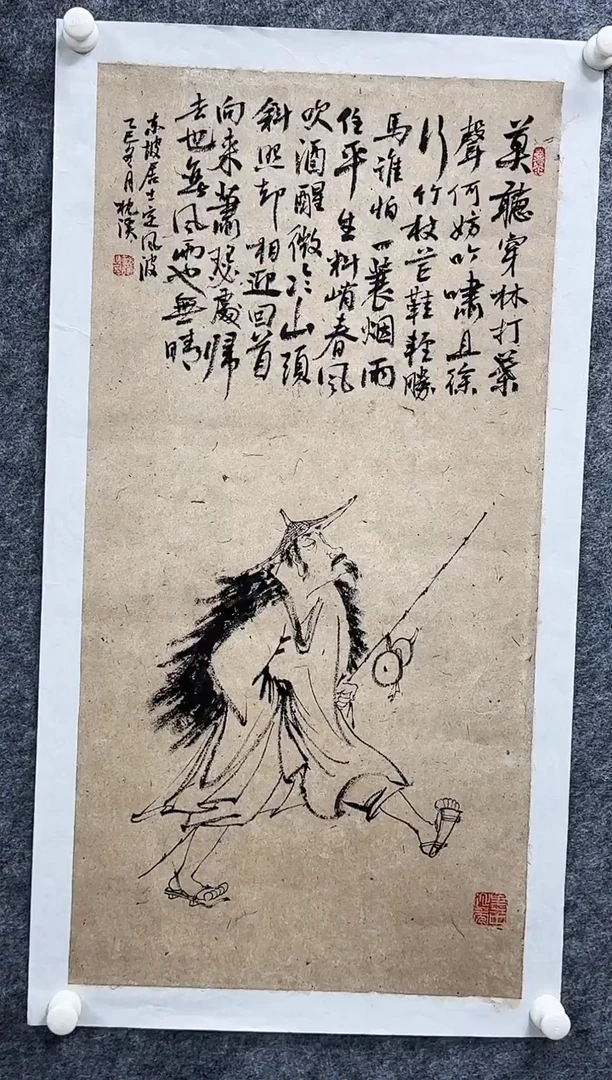 莫聽穿林打葉
聲何妨吟嘯且徐
行竹杖芒鞋輕勝
馬誰怕一蓑烟雨
任平生料峭春風
吹酒醒微冷山頭
斜照却相迎回首
向来蕭瑟處歸
去也無風雨也無晴
東坡居士定風波
乙巳冬月